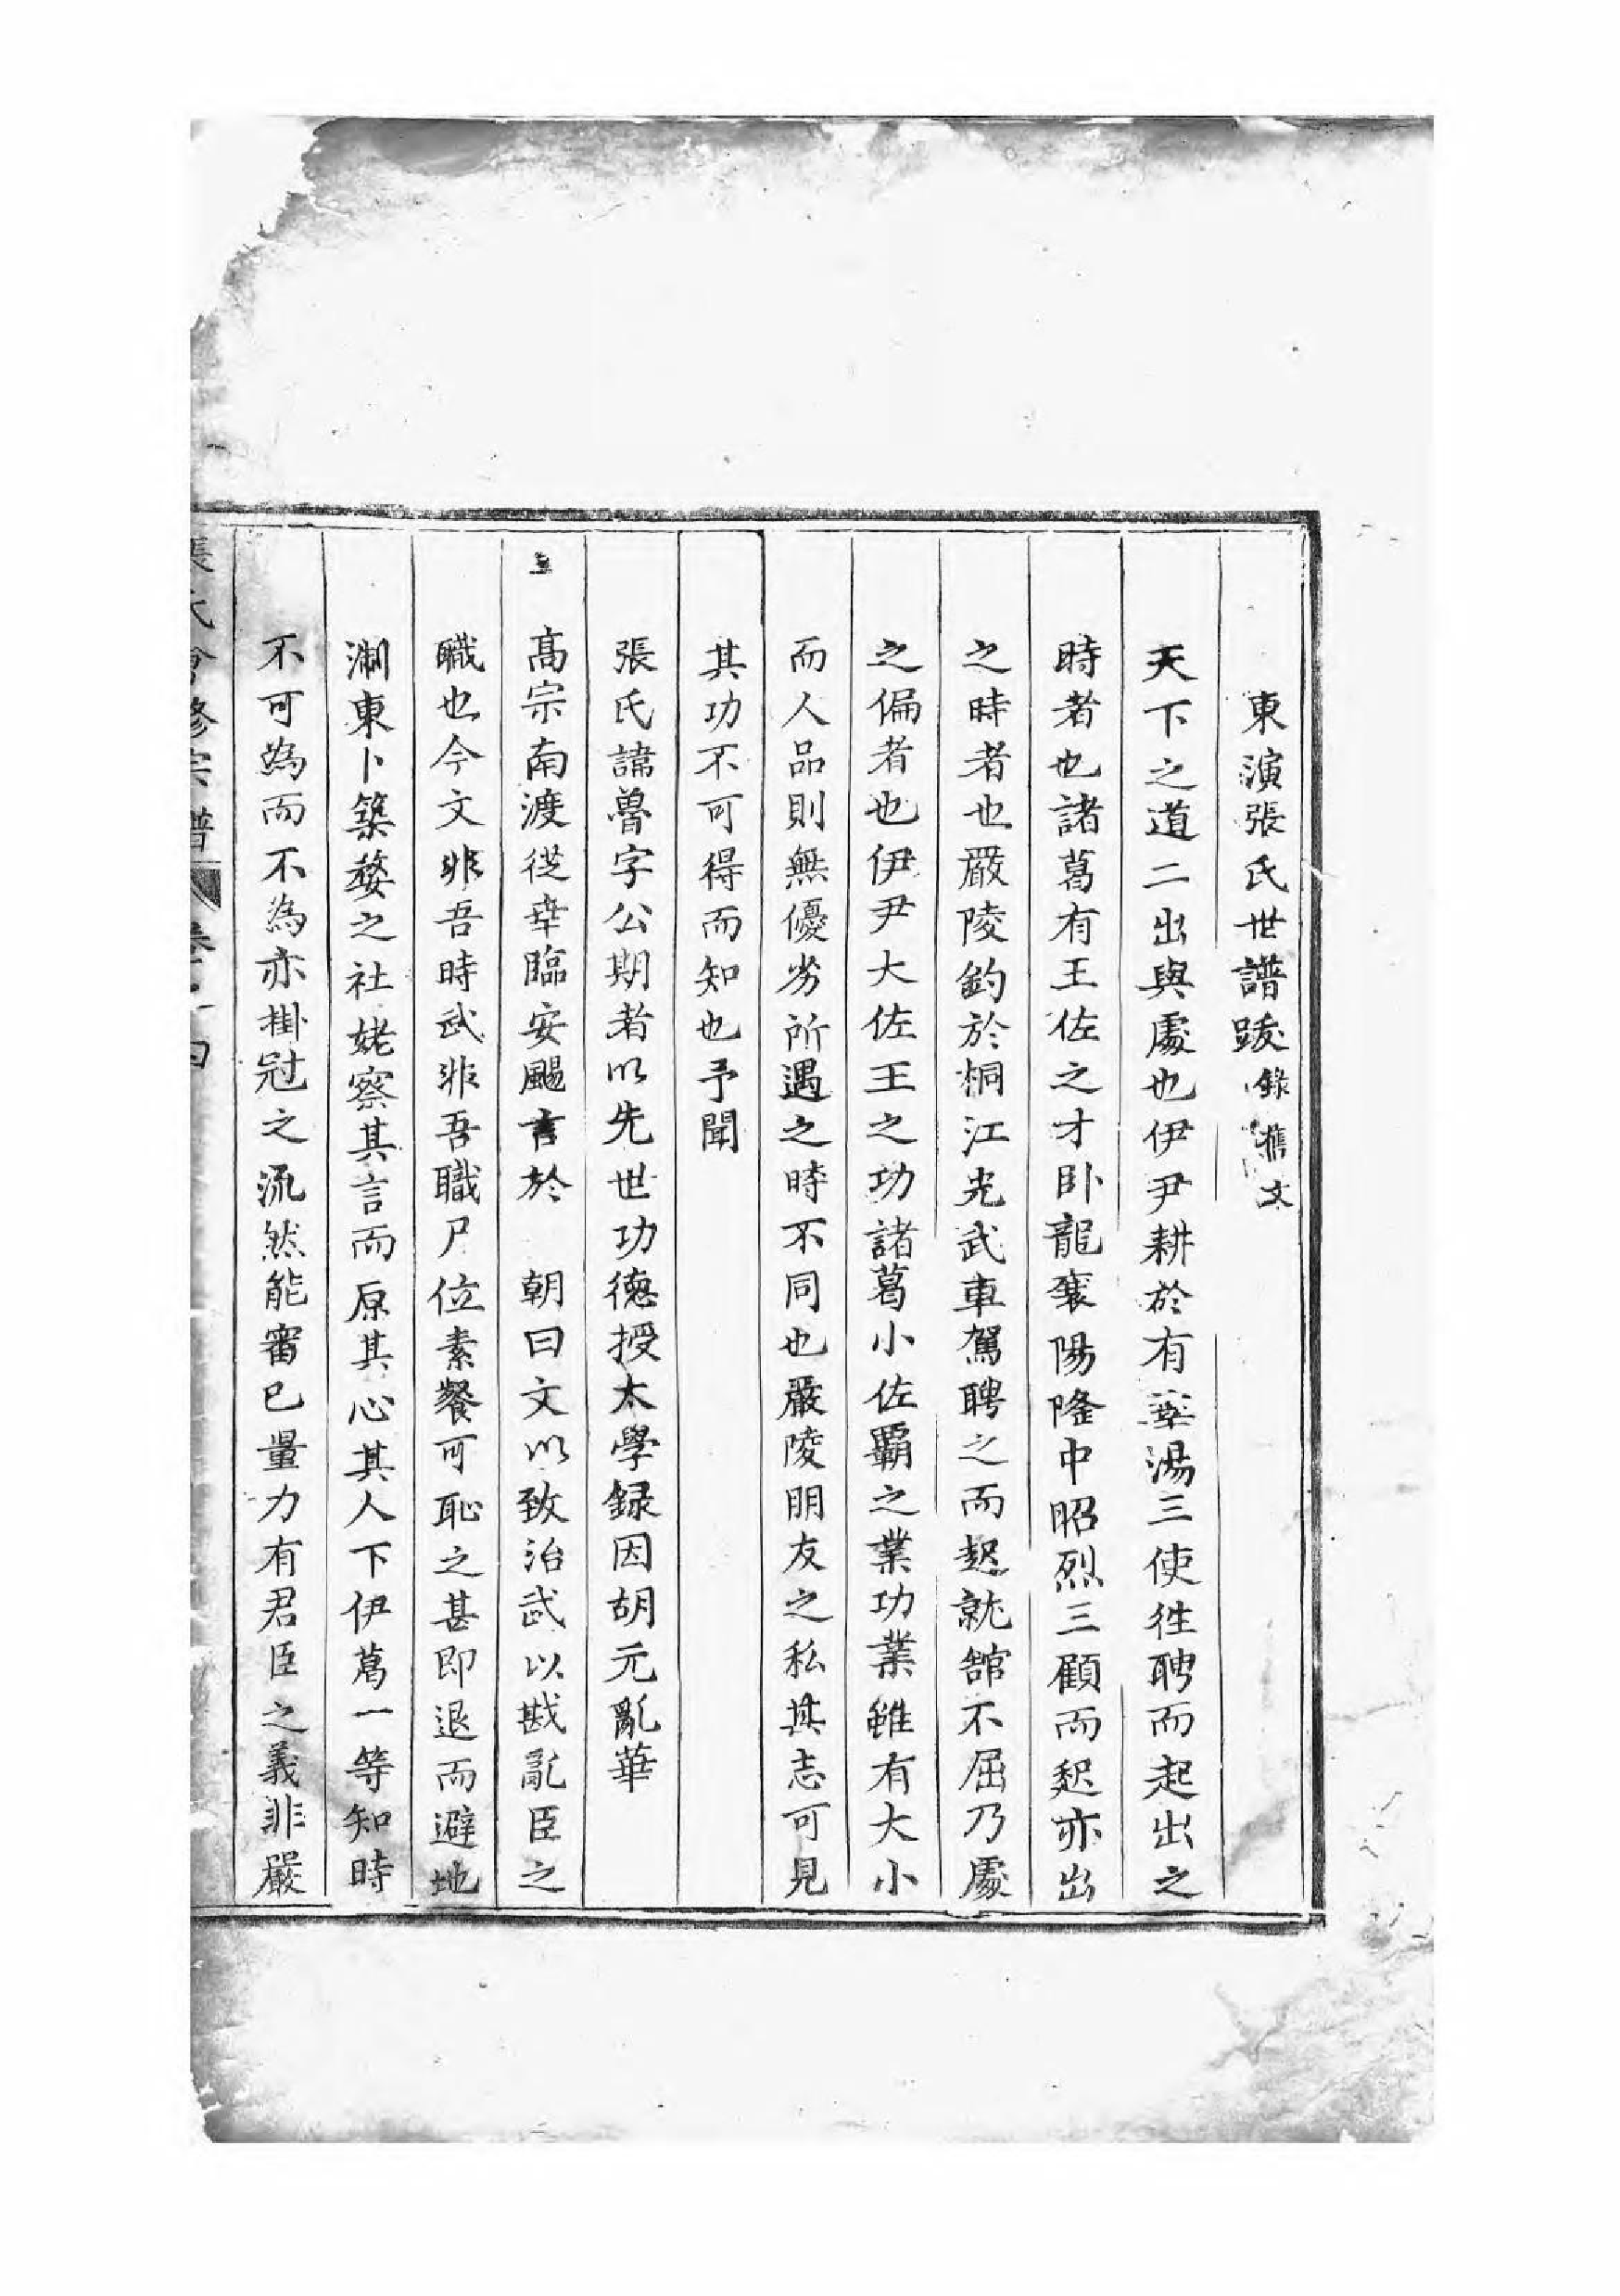 東演張氏世譜跋錄舊文
天下之道二出與處也伊尹耕於有莘湯三使徃聘而起出之
時者也諸葛有王佐之才卧龍襄陽隆中昭烈三顧而起亦出
之時者也嚴陵釣於桐江光武車駕聘之而起就舘不屈乃處
之偏者也伊尹大佐王之功諸葛小佐覇之業功業雖有大小
而人品則無優劣所遇之時不同也嚴陵朋友之私其志可見
其功不可得而知也予聞
張氏諱魯字公期者以先世功德授太學録因胡元亂華
高宗南渡從幸臨安颺言於　朝曰文以致治武以戡亂臣之
職也今文非吾時武非吾職尸位素餐可恥之甚即退而避地
淛東卜築婺之社姥察其言而原其心其人下伊葛一等知時
不可為而不為亦掛冠之流然能審已量力有君臣之義非嚴
張氏會修宗譜